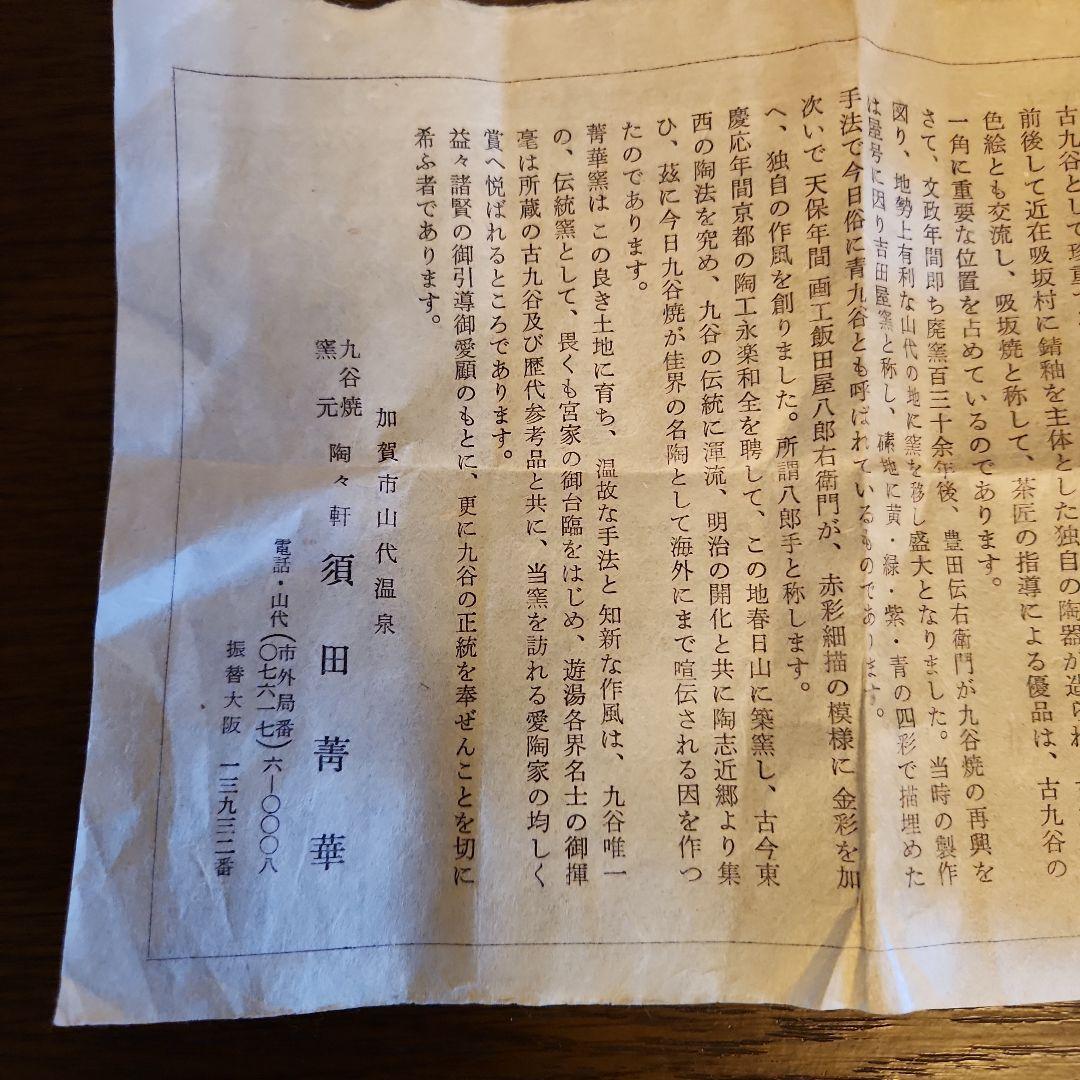 古九谷として珍重
前後して近在吸坂村に錆釉を主体とした独自の陶器が造られ
色絵とも交流し、吸坂焼と称して、茶匠の指導による優品は、古九谷の
一角に重要な位置を占めているのであります。
さて、文政年間即ち廃窯百三十余年後、豊田伝右衛門が九谷焼の再興を
図り、地勢上有利な山代の地に窯を移し盛大となりました。当時の製作
は屋号に因り吉田屋窯と称し、素地に黄・緑・紫・青の四彩で描埋めた
手法で今日俗に青九谷とも呼ばれているものであります。
次いで天保年間 画工飯田屋八郎右衛門が、赤彩細描の模様に金彩を加
へ、独自の作風を創りました。所謂八郎手と称します。
慶応年間京都の陶工永楽和全を聘して、この地春日山に築窯し、古今東
西の陶法を究め、九谷の伝統に渾流、明治の開化と共に陶志近郷より集
ひ、茲に今日九谷焼が佳界の名陶として海外にまで喧伝される因を作つ
たのであります。
菁華窯は この良き土地に育ち、温故な手法と 知新な作風は、九谷唯一
の、伝統窯として、畏くも宮家の御台臨をはじめ、遊湯各界名士の御揮
毫は所蔵の古九谷及び歴代参考品と共に、当窯を訪れる愛陶家の均しく
賞へ悦ばれるところであります。
益々諸賢の御引導御愛顧のもとに、更に九谷の正統を奉ぜんことを切に
希ふ者であります。
加賀市山代温泉
九谷焼
窯元 陶々軒 須田菁華
電話・山代(市外局番〇七六一七)六―〇〇〇八
振替大阪 一三九三二番